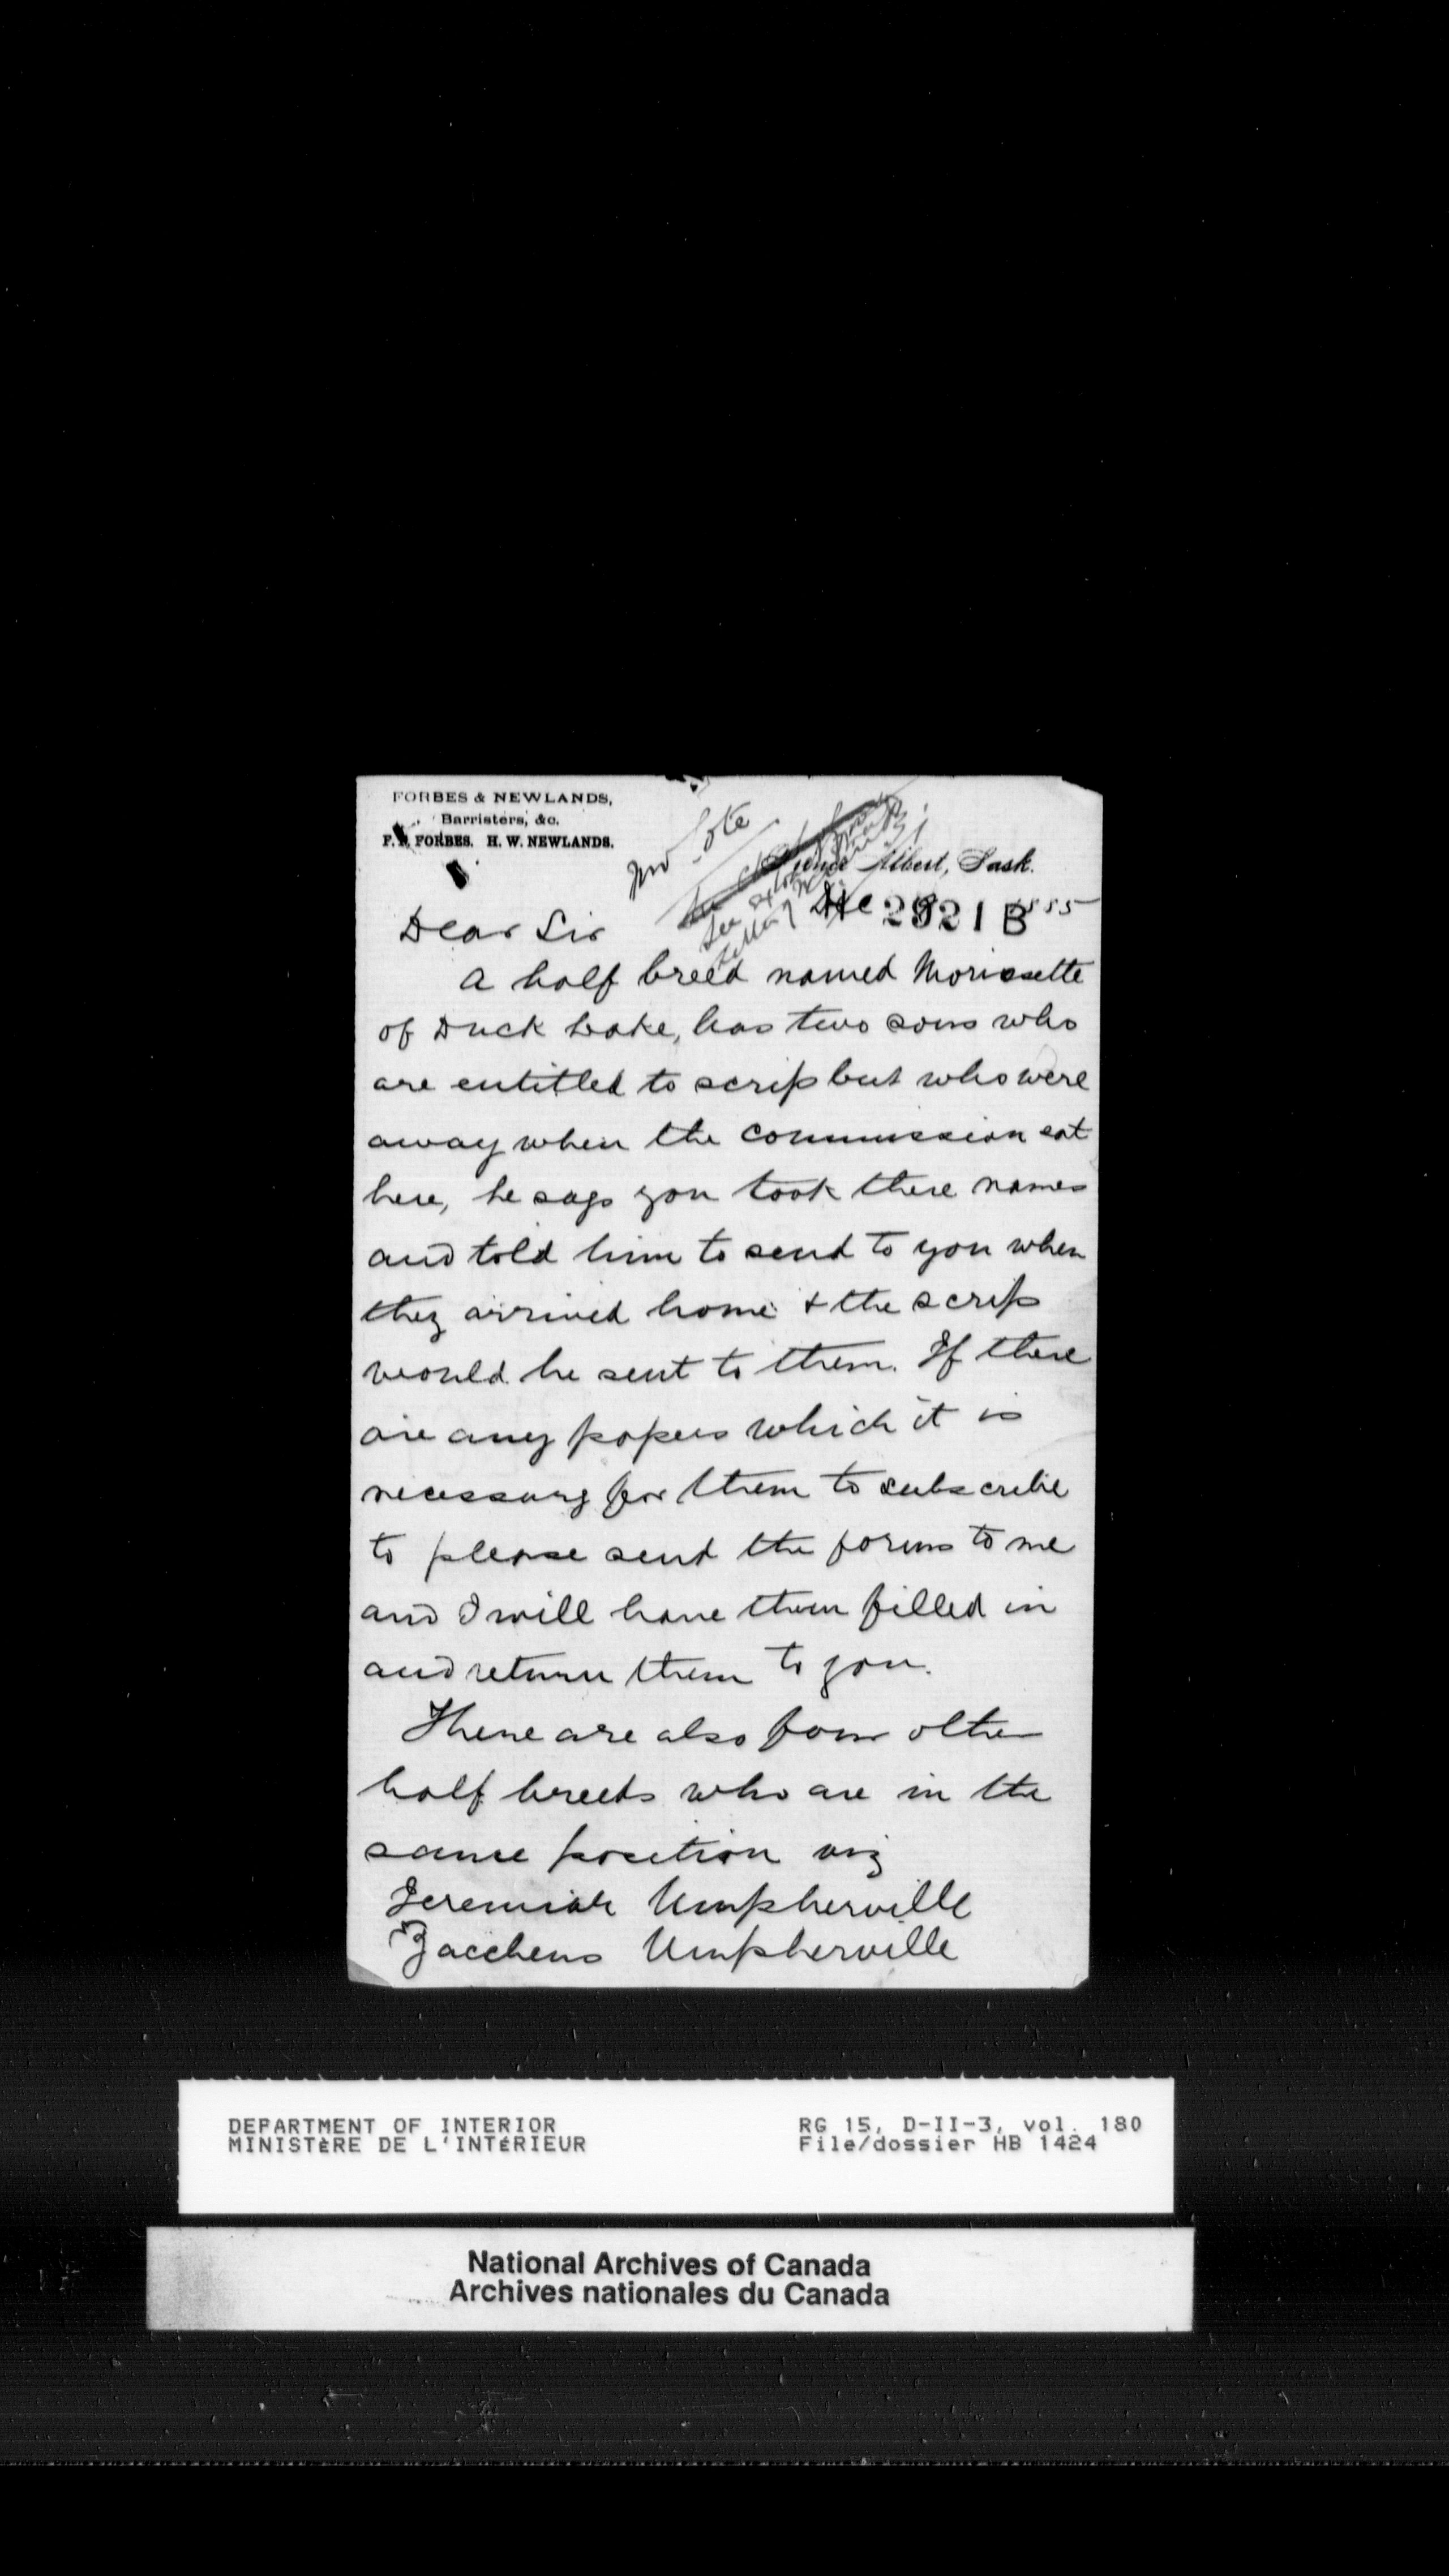 FORBES & NEWLANDS,
Barristers, &c.
F. FORBES. H. W. NEWLANDS.
Albert, Sask.
2821 B
1885
Dear Sir
A half breed named Morissette
of Duck Lake, has two sons who
are entitled to scrip but who were
away when the commission sat
here, he says you took there names
and told him to send to you when
they arrived home & the scrip
would be sent to them. If there
are any papers which it is
necessary for them to subscribe
to please send the forms to me
and I will have them filled in
and return them to you.
There are also four other
half breeds who are in the
same position viz
Jeremiah Umpherville
Zaccheus Umpherville
DEPARTMENT OF INTERIOR
MINISTÈRE DE L'INTÉRIEUR
RG 15, D-II-3, vol. 180
File/dossier HB 1424
National Archives of Canada
Archives nationales du Canada